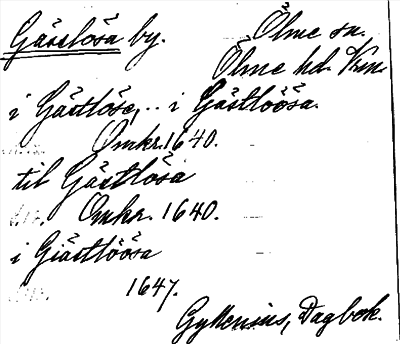 Gässlösa by. Ölme sn.
Ölme hd. Vrm.
i Gästlösa, .. i Gästlöösa.
Omkr. 1640.
til Gästlösa
Omkr. 1640.
i Giästlöösa
1647.
Gyllenius, Dagbok.